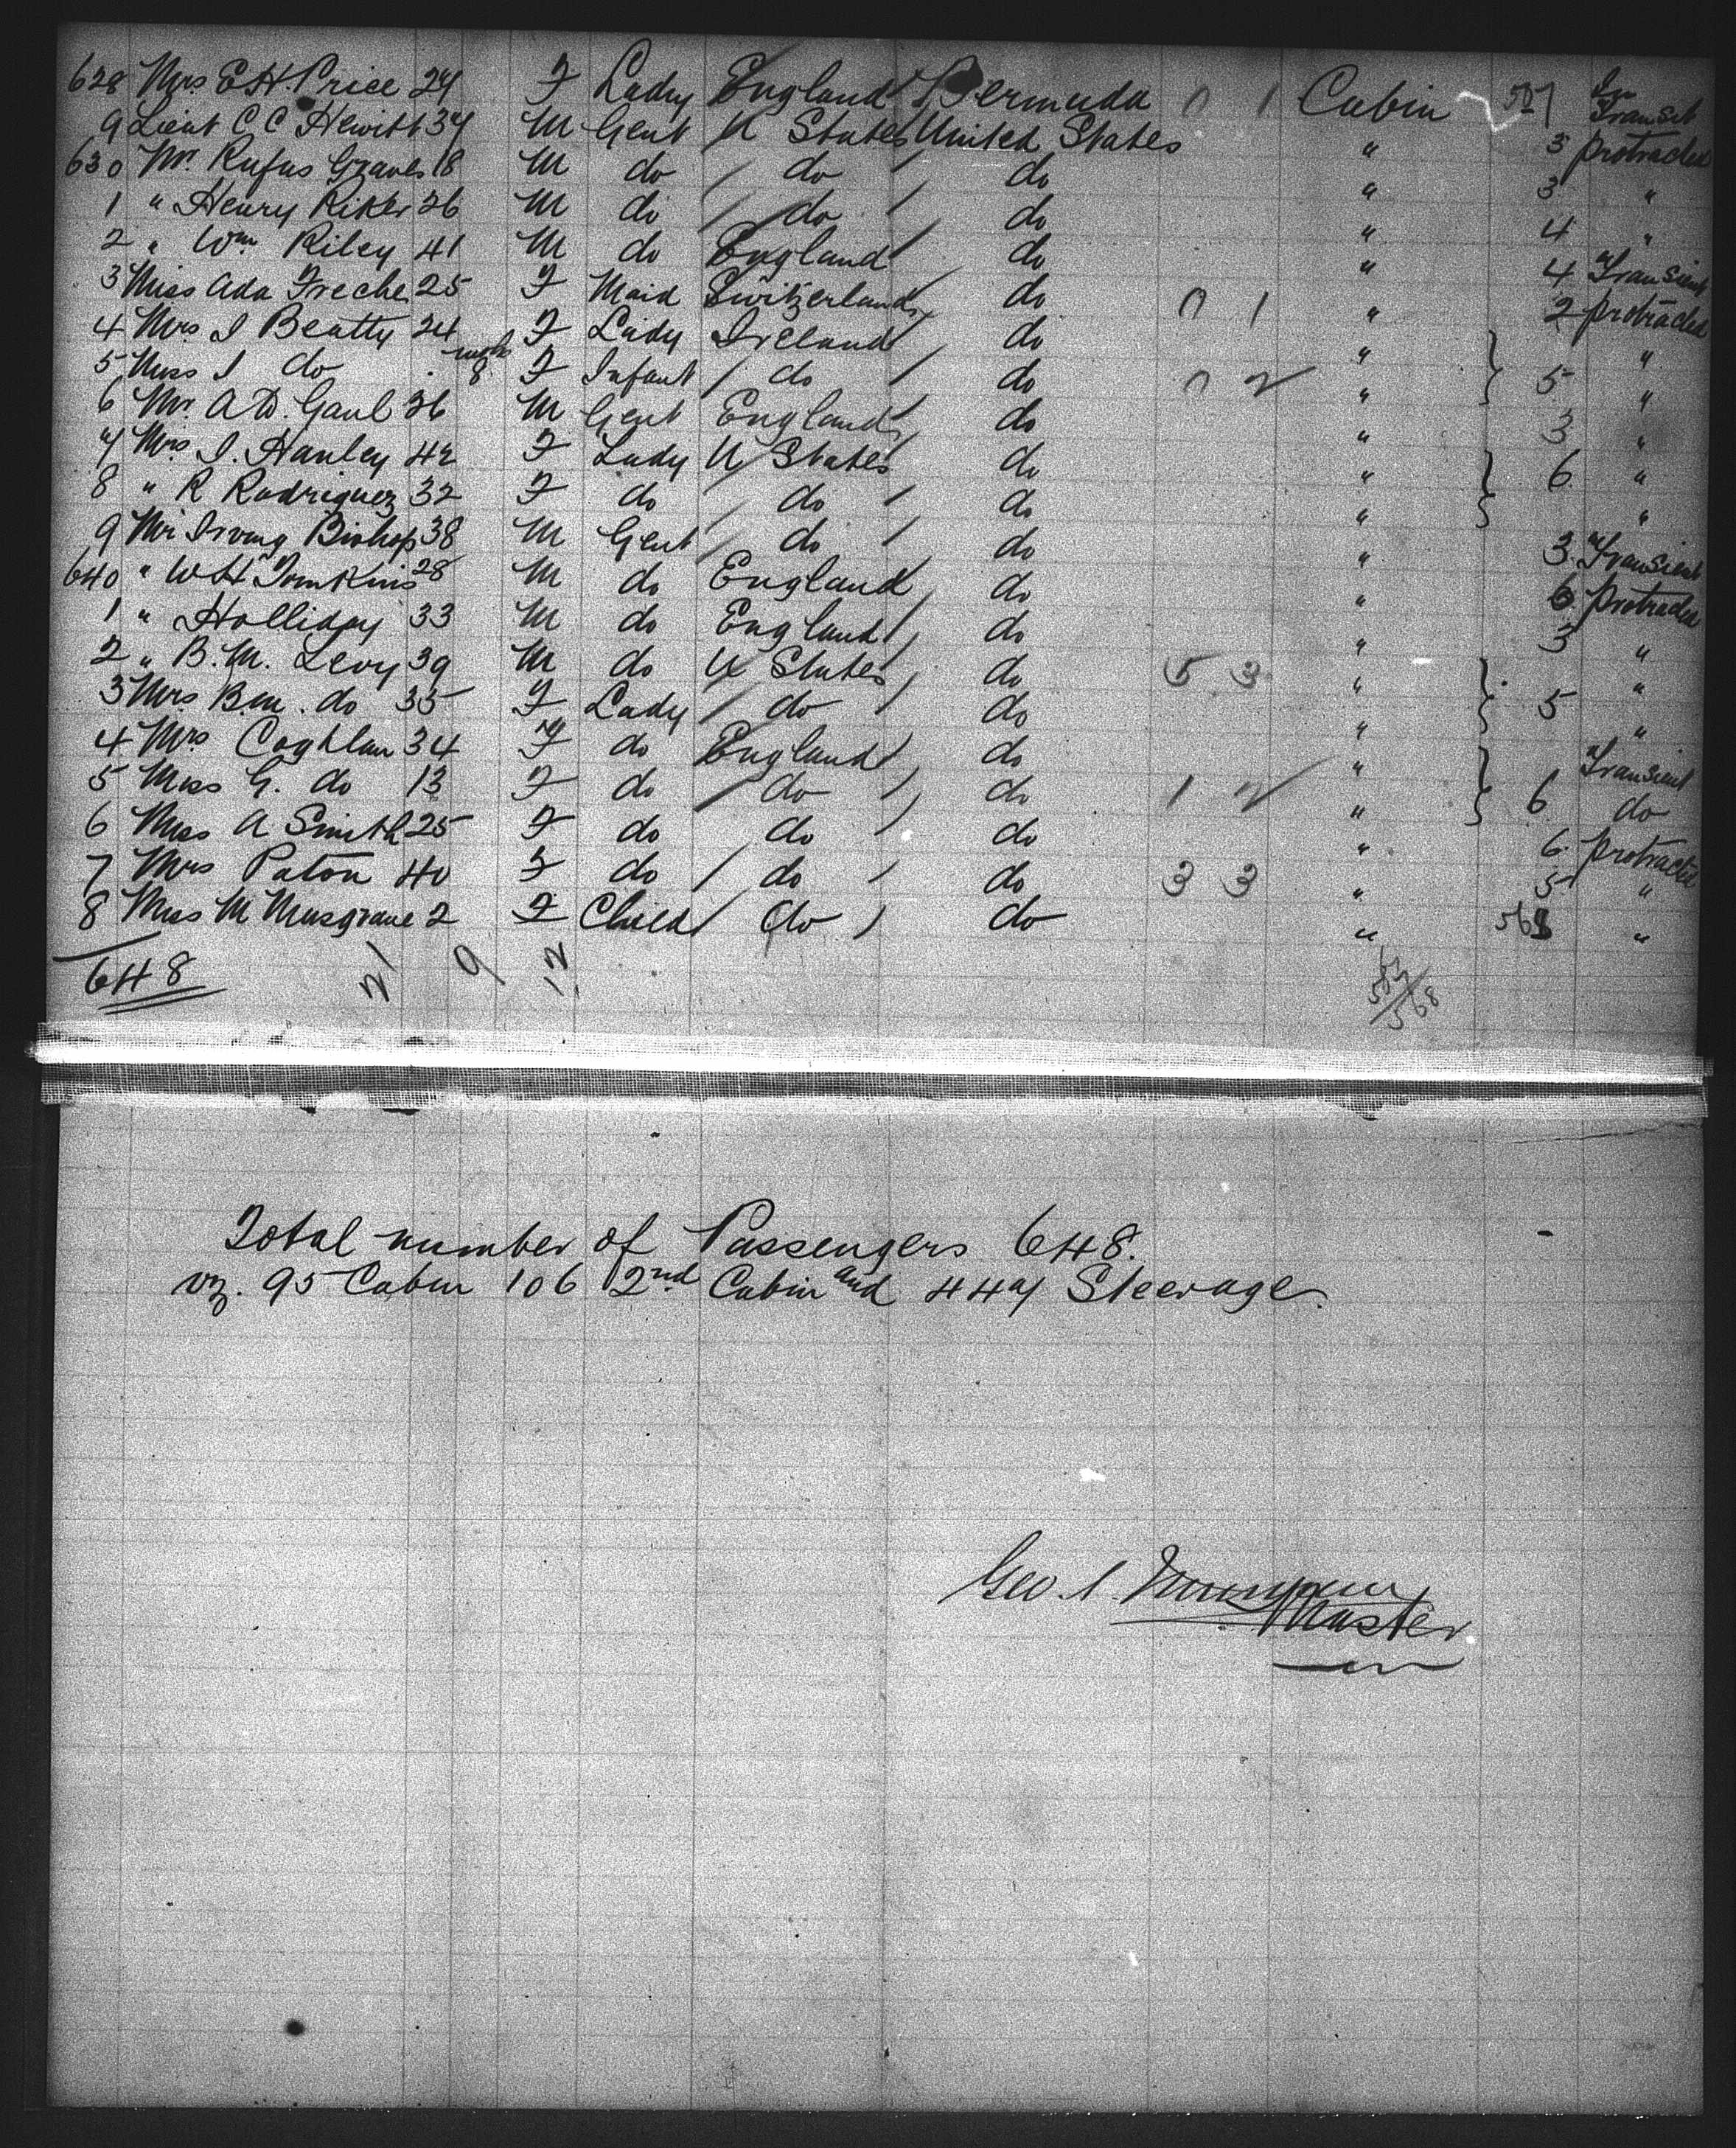 628 Mrs E.H. Price 27 F Lady England Bermuda 0 1 Cabin 507 In Transit
9 Lieut C C Hewitt 37 M Gent U States United States " 3 protracted
630 Mr. Rufus Graves 18 M do do do " 3 "
1 " Henry Riker 26 M do do do " 4 "
2 " Wm Riley 41 M do England do " 4 Transient
3 Miss Ada Freche 25 F Maid Switzerland do 0 1 " 2 protracted
4 Mrs I Beatty 24 F Lady Ireland do " "
5 Miss I do mths 8 F Infant do do 0 2 " 5 "
6 Mr. A D. Gaul 36 M Gent England do " 3 "
7 Mrs I. Hanley 42 F Lady U States do " 6 "
8 " R Rodriguez 32 F do do do " "
9 Mr Irving Bishop 38 M Gent do do " 3 Transient
640 " W H Tomkins 28 M do England do " 6 protracted
1 " Holliday 33 M do England do " 3 "
2 " B.M. Levy 39 M do U States do 5 3 " "
3 Mrs B.M. do 35 F Lady do do " 5 "
4 Mrs Coghlan 34 F do England do " Transient
5 Miss G. do 13 F do do do 1 2 " 6 do
6 Miss A Smith 25 F do do do " 6 protracted
7 Mrs Paton 40 F do do do 3 3 " 5 "
8 Miss M Musgrave 2 F Child do do " 568 "
648 21 9 12
568
Total number of Passengers 648.
viz. 95 Cabin 106 2nd Cabin and 447 Steerage.
Geo. S.
Master